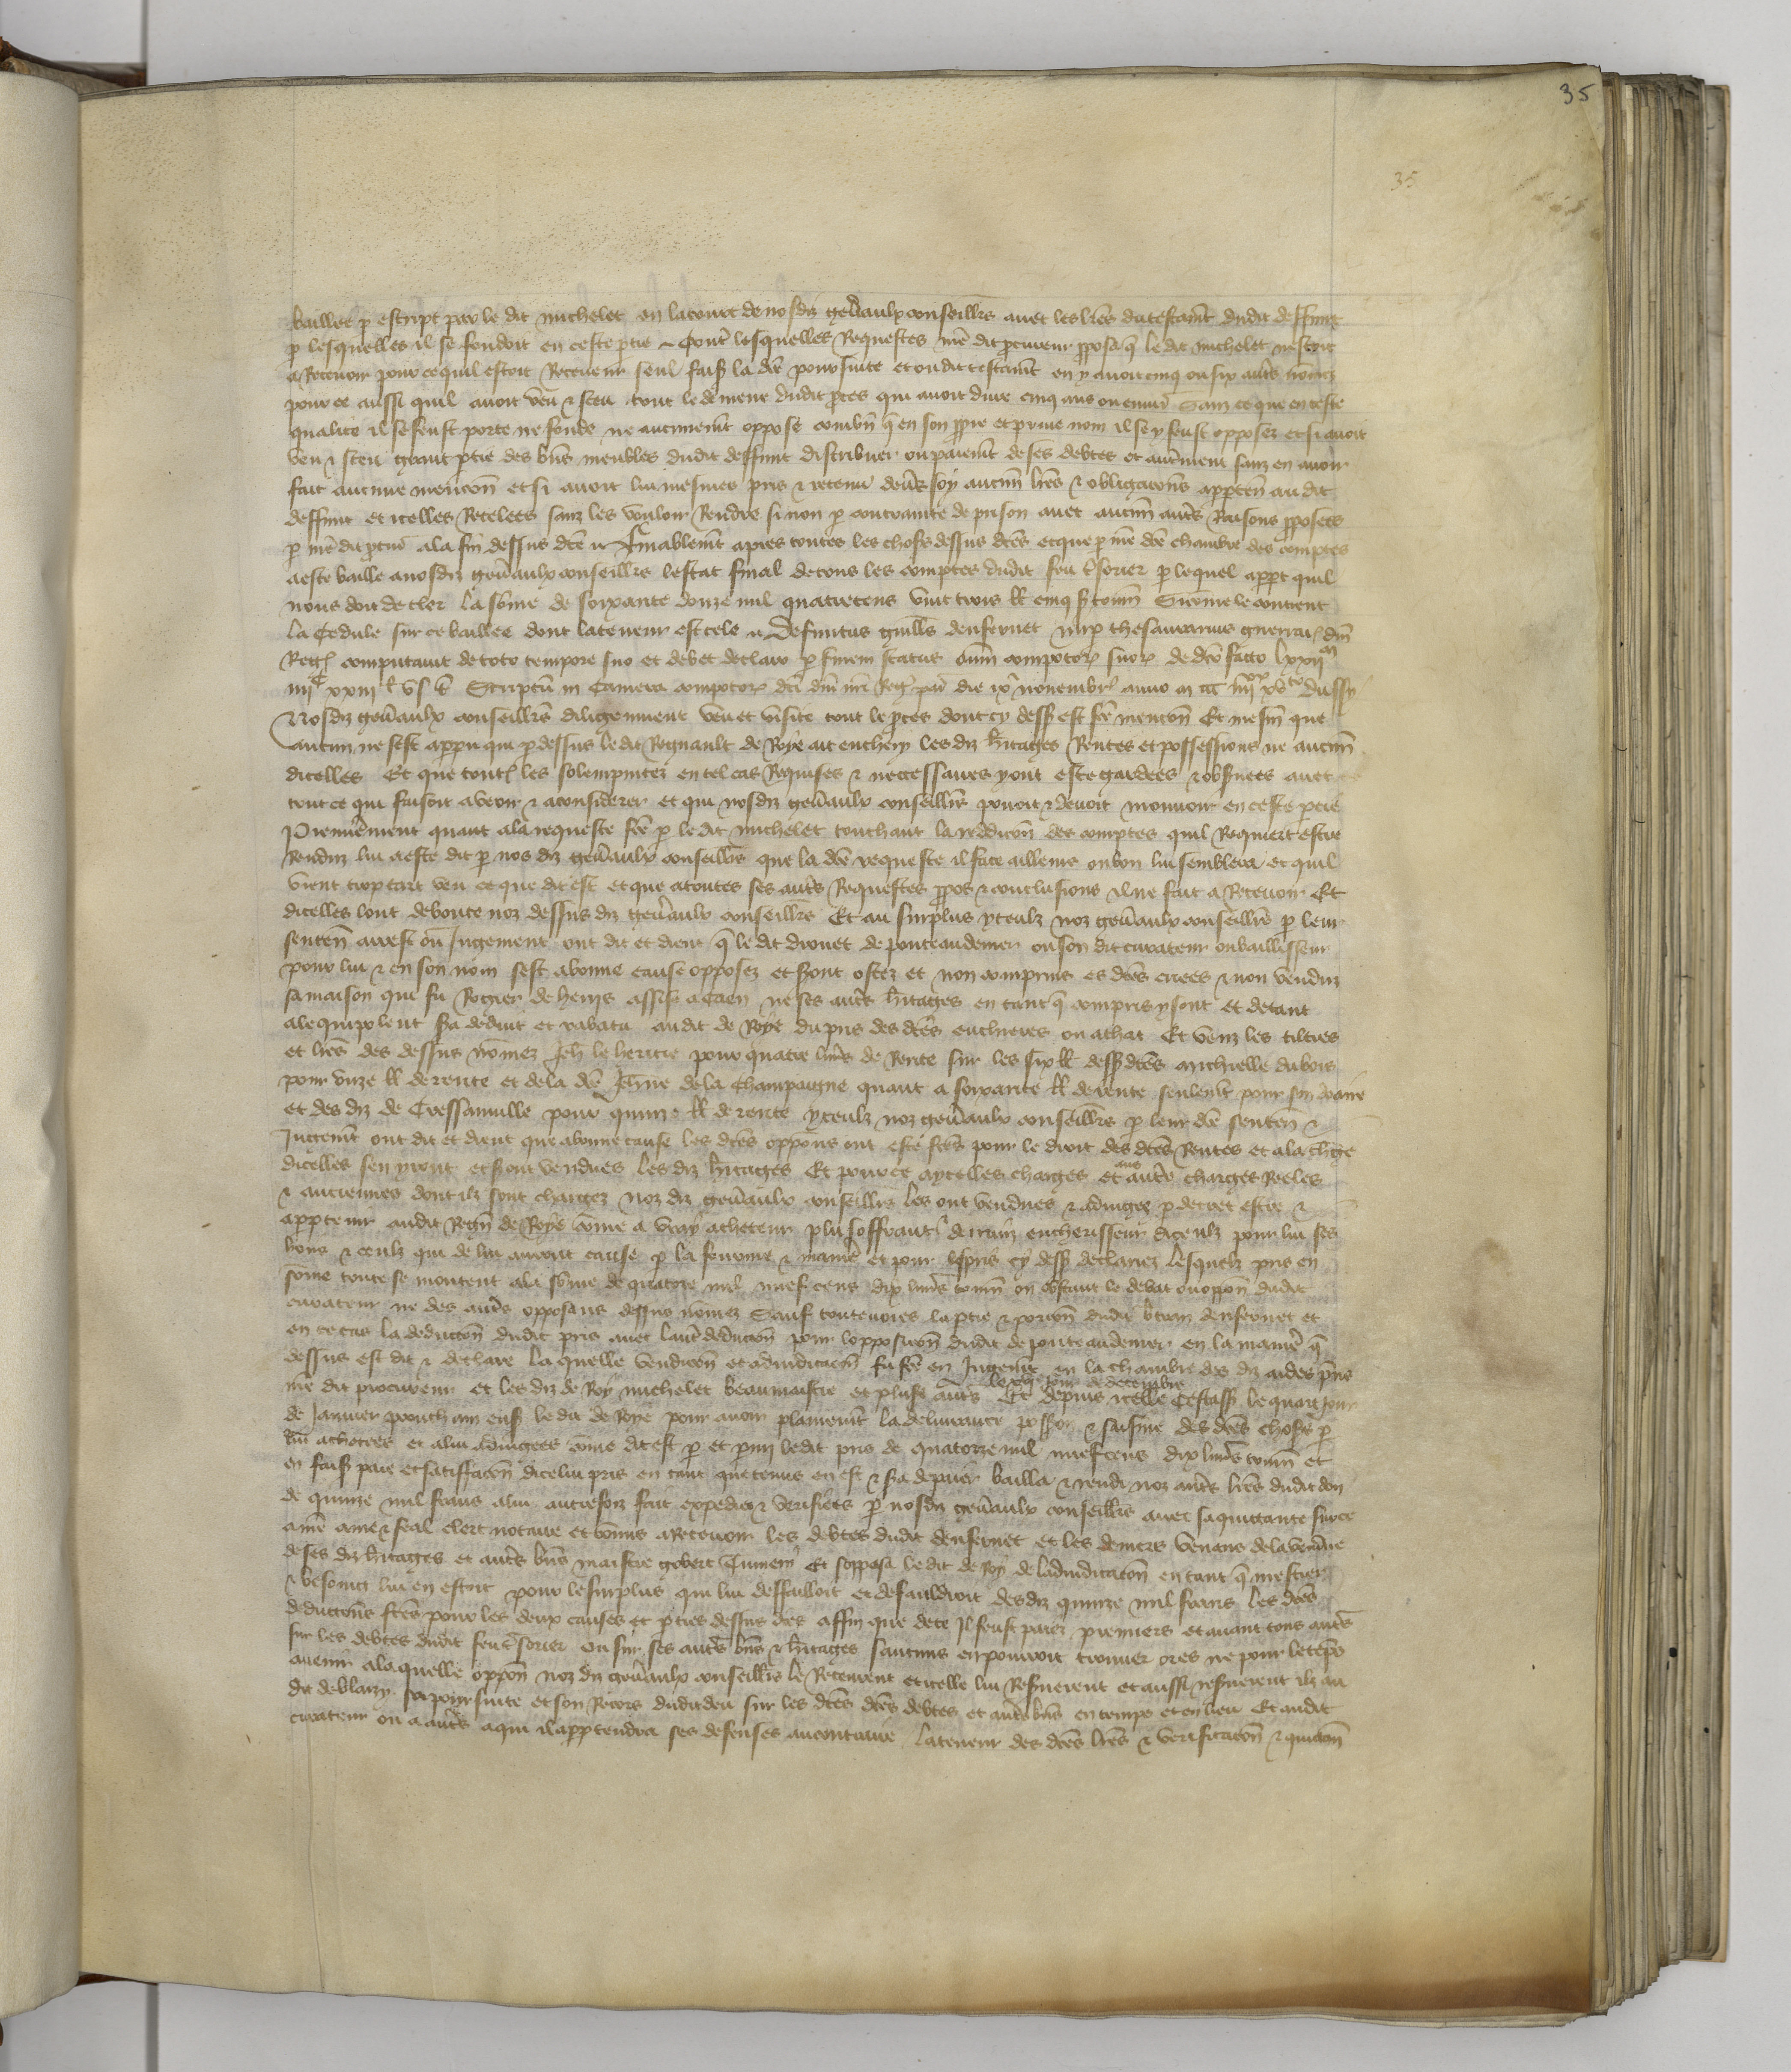 35
35
baillee p escript par le dit michelet en lacourt de nosdiz gnaulx conseillrs avec les lres du testamt dudit deffunt
p lesquelles il se fondoit en ceste ptie Contre lesquelles Requestes nre dit pcureur pposa q le dit michelet nestoit
a Recevoir pour ce quil estoit Receveur seul fais la dce poursuite et ou dit testamt en y avoit cinq ou six autrs nomez
pour ce aussi quil avoit veu & sceu tout le demene dudit pces qui avoit dure cinq ans ou environ Sanz ce que en ceste
qualite il se feust porte ne fonde ne aucunemt oppose combn q en son ppre et prive nom il se y feust opposez et si avoit
veu & sceu grant ptie des bns meubles dudit deffunt distribuer ou paiemt de ses debtes et autrement sanz en avoir
fait aucune mencon et si avoit lui mesmes pris & retenu devs soy aucuns lres & obligacons apptens au dit
deffunt et icelles Recelees sanz les vouloir Rendre si non p contrainte de prison avec aucuns autrs Raisons pposees
p nre dit pcur ala fin dessus dce Finablemt apres toutes les choses dessus dces et que p nre dce chambre des comptes
a este baille a nosdiz gnaulx conseillrs lestat final de tous les comptes dudit feu tsorier p lequel appt quil
nous doit de cler la some de soixante douze mil quatrecens vint trois ll cinq s tourn Si come le contient
la Cedule sur ce baillee dont la teneur est tele Defunctus guills denfernet nup thesaurarius guerrar dni
Regis computavit de toto tempore suo et debet de claro p finem status oim compotor suor de dco facto lxxii m
iiii c xxiii l v s t Scriptu in Camera compotor dci dni nri Reg par die ix novembr anno m ccc iiii xx v to dussy
Nosdiz gnaulx conseillrs diligemment veu et visite tout le pces dont cy dess est fce mencon Et mesm que
aucun ne sest apparu qui p dessus le dit Regnault de Roye ait enchery les diz hitages Rentes et possessions ne aucun
dicelles Et que toutes les solempnitez en tel cas Requises & neccessaires y ont este gardees & obsvees avec
tout ce qui faisoit a veoir & a considerer et qui nosdiz gnaulx conseillrs povoit & devoit mouvoir en ceste ptie
Premierement quant ala requeste fce p le dit michelet touchant la reddicon des comptes quil Requiert estre
Renduz lui a este dit p nosdiz gnaulx conseillrs que la dce requeste il face ailleurs ou bon lui semblera et quil
vient trop tart veu ce que dit est et que a toutes ses autrs Requestes ppos & conclusions il ne fait a Recevoir Et
dicelles lont deboute noz dessus diz gnaulx conseillrs Et au surplus yceulx noz gnaulx conseillrs p leur
sentence arrest ou Jugement ont dit et dient q le dit drouet de ponteaudemer ou son dit curateur ou baillisseur
pour lui & en son nom sest a bonne cause opposez et sront ostez et non comprins es dces criees & non venduz
sa maison qui fu Rogier de hems assise a Caen ne ses autrs hitages en tant q compris y sont et de tant
alequipolent sra deduit et rabatu au dit de Roye du pris des dces encheres ou achat Et veuz les tiltres
et lres des dessus nomez Jeh le heritie pour quatre livrs de Rente sur les six ll dess dces michielle dubois
pour unze ll de rente et de la dce Jehne de la Champaigne quant a soixante ll de rente seulemt pour son
et des diz de Cressanville pour quinze ll de rente yceulx noz gnaulx conseillrs p leur dce sentence &
Jugemt ont dit et dient que a bonne cause les dces oppons ont este fces pour le droit des dces Rentes et ala chge
dicelles sen yront et sront vendues les diz hitages Et pour ce aycelles charges et aus autrs charges Reeles
& anciennes dont ilz sont chargez noz diz gnaulx conseillrs les ont vendues & adiugees p decret estre &
apptenir audit Regn de Roye come a vray acheteur plus offrant & derrain encherisseur diceulx pour lui ses
hoirs & ceulx qui de lui auront cause p la fourme & manie et pour le pris cy dess declariez lesquelz pris en
some toute se montent ala some de quatorze mil neuf cens dix livrs tourn non obstant le debat ou oppon dudit
curateur ne des autrs opposans dessus nomez Sauf toutevoies la ptie & porcon dudit denfernet et
en ce cas la deduccon dudit pris avec lautre deduccon pour lopposicon dudit de ponteaudemer en la manie q
dessus est dit & declare la quelle vendicon et adiudicacon fu fce en Jugemt en la chambre des diz aides pns
le xxii jour de decembre
nre dit procureur et les diz de Roy michelet beaumaistre et plusrs autrs Et depuis icelle Cestass le quart jour
de Janvier prouch ain ens le dit de Roye pour avoir plainemt la delivrance possession & saisine des dces choses p
lui achetees et alui adiugees come dit est p et pmi ledit pris de quatorze mil neufcens dix livrs tourn et
en fais paie et satisffacon dicelui pris en tant que tenus en est & sra de paier bailla & rendi noz autrs lres dudit don
de quinze mil frans alui autresfoiz fait expediees & verifiees p nosdiz gnaulx conseillrs avec sa quittance sur ce
a nre ame & feal clerc notaire et comis a Recevoir les debtes dudit denfernet et les deniers venans de la vendue
de ses diz hitages et autrs bns maistre gobert Et sopposa le dit de Roy de ladiudicacon en tant q mestier
& besoing lui en estoit pour le surplus qui lui deffailloit et defauldroit des diz quinze mil frans les dces
deduccons fces pour les deux causes et pties dessus dces affin que de ce Il feust paiez premiers et avant tous autrs
sur les debtes dudit feu tsorier ou sur ses autrs bns & hitages saucuns en povoit trouver ores ne pour le temps
avenir ala quelle oppon noz diz gnaulx conseillrs le Receurent et icelle lui Reserverent et aussi reserverent ilz au
dit de blaizy sa poursuite et son Recors dudit deu sur les dces dces debtes et autrs bns en temps et en lieu Et audit
curateur ou a autrs a qui il apptendra ses defenses au contraire la teneur des dces lres & verificacon & quictan